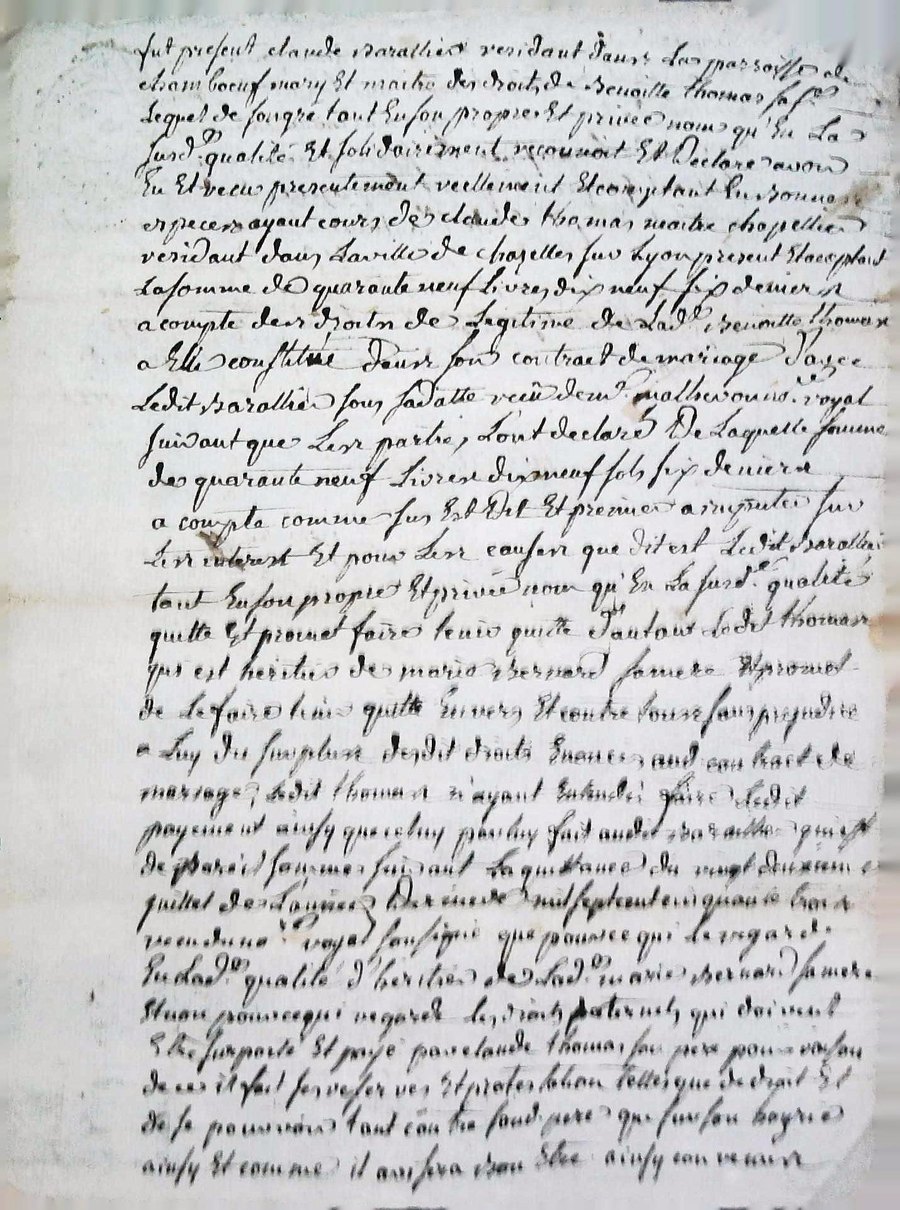 fut present claude Barallier residant dans La parroisse de
chamboeuf mary Et maitre des droits de Benoitte thomas sa fe
Lequel de son gre tant En son propre Et privée nom qu'En La
susd.e qualité Et solidairement reconnoit Et Declare avoir
Eu Et recu presentement reellement Et comptant En Bonnes
especes ayant cours de claude thomas maitre chapellier
residant dans La ville de chazelles sur Lyon present Et acceptant
La somme de quarante neuf Livres dix neuf six deniers
a compte des droits de Legitime de Lad.e Benoitte thomas
a Elle constitué dans son contract de mariage D'avec
Ledit Barallier sous sa datte reçu de m.e malhevou no.re royal
suivant que Les parties L'ont declaré De Laquelle somme
de quarante neuf Livres dix neuf sols six deniers
a compte comme sus Est Dit Et premier a imputer sur
Les interest Et pour Les causes que dit est Ledit Barallier
tant En son propre Et privée nom qu'En La susd.e qualité
quitte Et promet faire tenir quitte D'autant Ledit thomas
qui est heritier de marie Bernard sa mere Et promet
de Le faire tenir quitte Envers Et contre tous sans prejudice
a Luy du surplus desdit droits Enoncés aud contract de
mariage, Ledit thomas n'ayant Entendu faire Ledit
payement ainsy que celuy par luy fait audit Barallier qui est
de pareil somme suivant La quittance du vingt deuxiem e
juillet de L'année Derniere mil sept cent cinquante trois
recu du no.re royal soussigné que pour ce qui Le regarde
En Lad.e qualité d'heritier de Lad.e marie Bernard sa mere
Et non pour ce qui regarde Les droits paternels qui doivent
Etre suporté Et payé par claude thomas son pere pour raison
de ces il fait ses reserves Et protestation telles que de droit Et
de se pourvoir tant contre sond. pere que sur son hoyrie
ainsy Et comme il avisera Bon Etre ainsy convenus